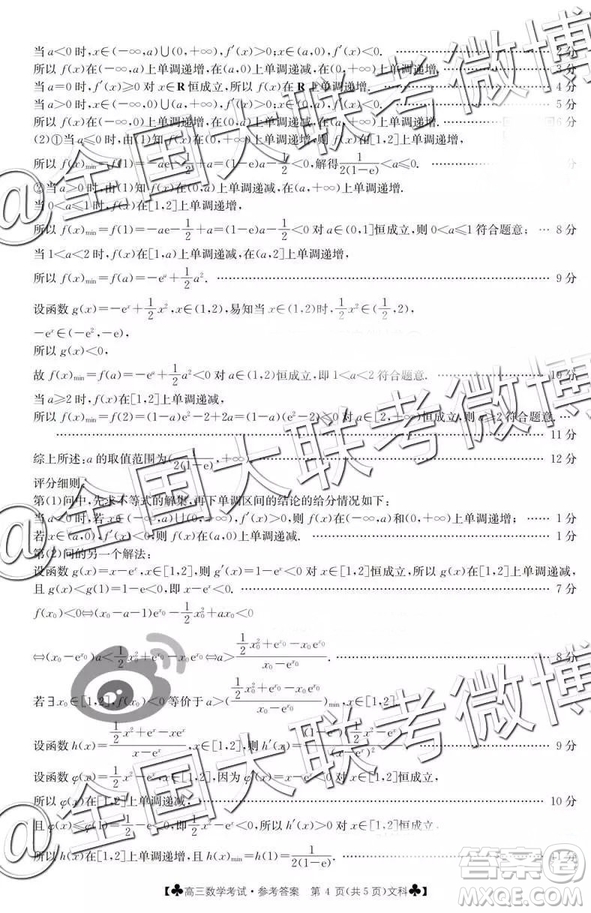 当a<0时,x∈(-∞,a)∪(0,+∞),f′(x)>0;x∈(a,0),f′(x)<0. 2分
所以f(x)在(-∞,a)上单调递增,在(a,0)上单调递减,在(0,+∞)上单调递增. 3分
当a=0时,f′(x)≥0对x∈R恒成立,所以f(x)在R上单调递增. 4分
当a>0时, 5分
所以f(x)在(-∞,0)上单调递增,在(0,a)上单调递减,在(a,+∞)上单调递增.
(2)①当a≤0时,由(1)知f(x)在[1,2]上单调递增,
所以f(x)min=f(1)=-a-1/2+a=(1-e)a-1/2<0,解得1/2(1-e)<a≤0.
②当a>0时,由(1)知f(x)在(0,a)上单调递减,在(a,+∞)上单调递增.
当0<a≤1时,f(x)在[1,2]上单调递增,
所以f(x)min=f(1)=-ea-1/2+a=(1-e)a-1/2<0对a∈(0,1]恒成立,则0<a≤1符合题意; 8分
当1<a<2时,f(x)在[1,a)上单调递减,在(a,2]上单调递增,
所以f(x)min=f(a)=-eᵃ+1/2a². 9分
设函数g(x)=-eˣ+1/2x²,x∈(1,2),易知当x∈(1,2)时,1/2x²∈(1/2,2),
-eˣ∈(-e²,-e)
所以g(x)<0,
故f(x)min=f(a)=-eᵃ+1/2a²<0对a∈(1,2)恒成立,即1<a<2符合题意. 10分
当a≥2时,f(x)在[1,2]上单调递减,
所以f(x)min=f(2)=(1-a)e²-2+2a=(1-e²)a+e²-2<0对a∈[2,+∞)恒成立,则a≥2符合题意.
11分
综上所述:a的取值范围为(1/2(1-e),+∞). 12分
评分细则:
第(1)问中,先求不等式的解集,再下单调区间的结论的给分情况如下:
当a<0时,若x∈(-∞,a)∪(0,+∞),f′(x)>0,所以f(x)在(-∞,a)和(0,+∞)上单调递增; 1分
若x∈(a,0),f′(x)<0,所以f(x)在(a,0)上单调递减. 1分
第(2)问的另一个解法:
设函数g(x)=x-eˣ,x∈[1,2],则g′(x)=1-eˣ<0对x∈[1,2]恒成立,所以g(x)在[1,2]上单调递减,
且g(x)<g(1)=1-e<0,即x-eˣ<0. 7分
f(x₀)<0⇔(x₀-a-1)e^x₀-1/2x₀²+ax₀<0
⇔(x₀-e^x₀)a<1/2x₀²+e^x₀-x₀e^x₀⇔a>(1/2x₀²+e^x₀-x₀e^x₀)/(x₀-e^x₀). 8分
若∃x₀∈[1,2],f(x₀)<0等价于a>( )min,x∈[1,2],
设函数h(x)=(1/2x²+eˣ-xeˣ)/(x-eˣ),x∈[1,2],则h′(x)= 9分
设函数φ(x)=1/2x²-eˣ,x∈[1,2],因为φ′(x)=x-eˣ<0,
所以φ(x)在[1,2]上单调递减, 10分
且φ(x)≤φ(1)=1/2-e<0,所以h′(x)>0对x∈[1,2]恒成立,
所以h(x)在[1,2]上单调递增,h(x)min=h(1)=1/2(1-e). 11分
♣高三数学考试·参考答案 第4页(共5页)文科♣
@全国大联考微博
@全国大联考微博
@全国大联考微博
答案圈
MXQE.COM